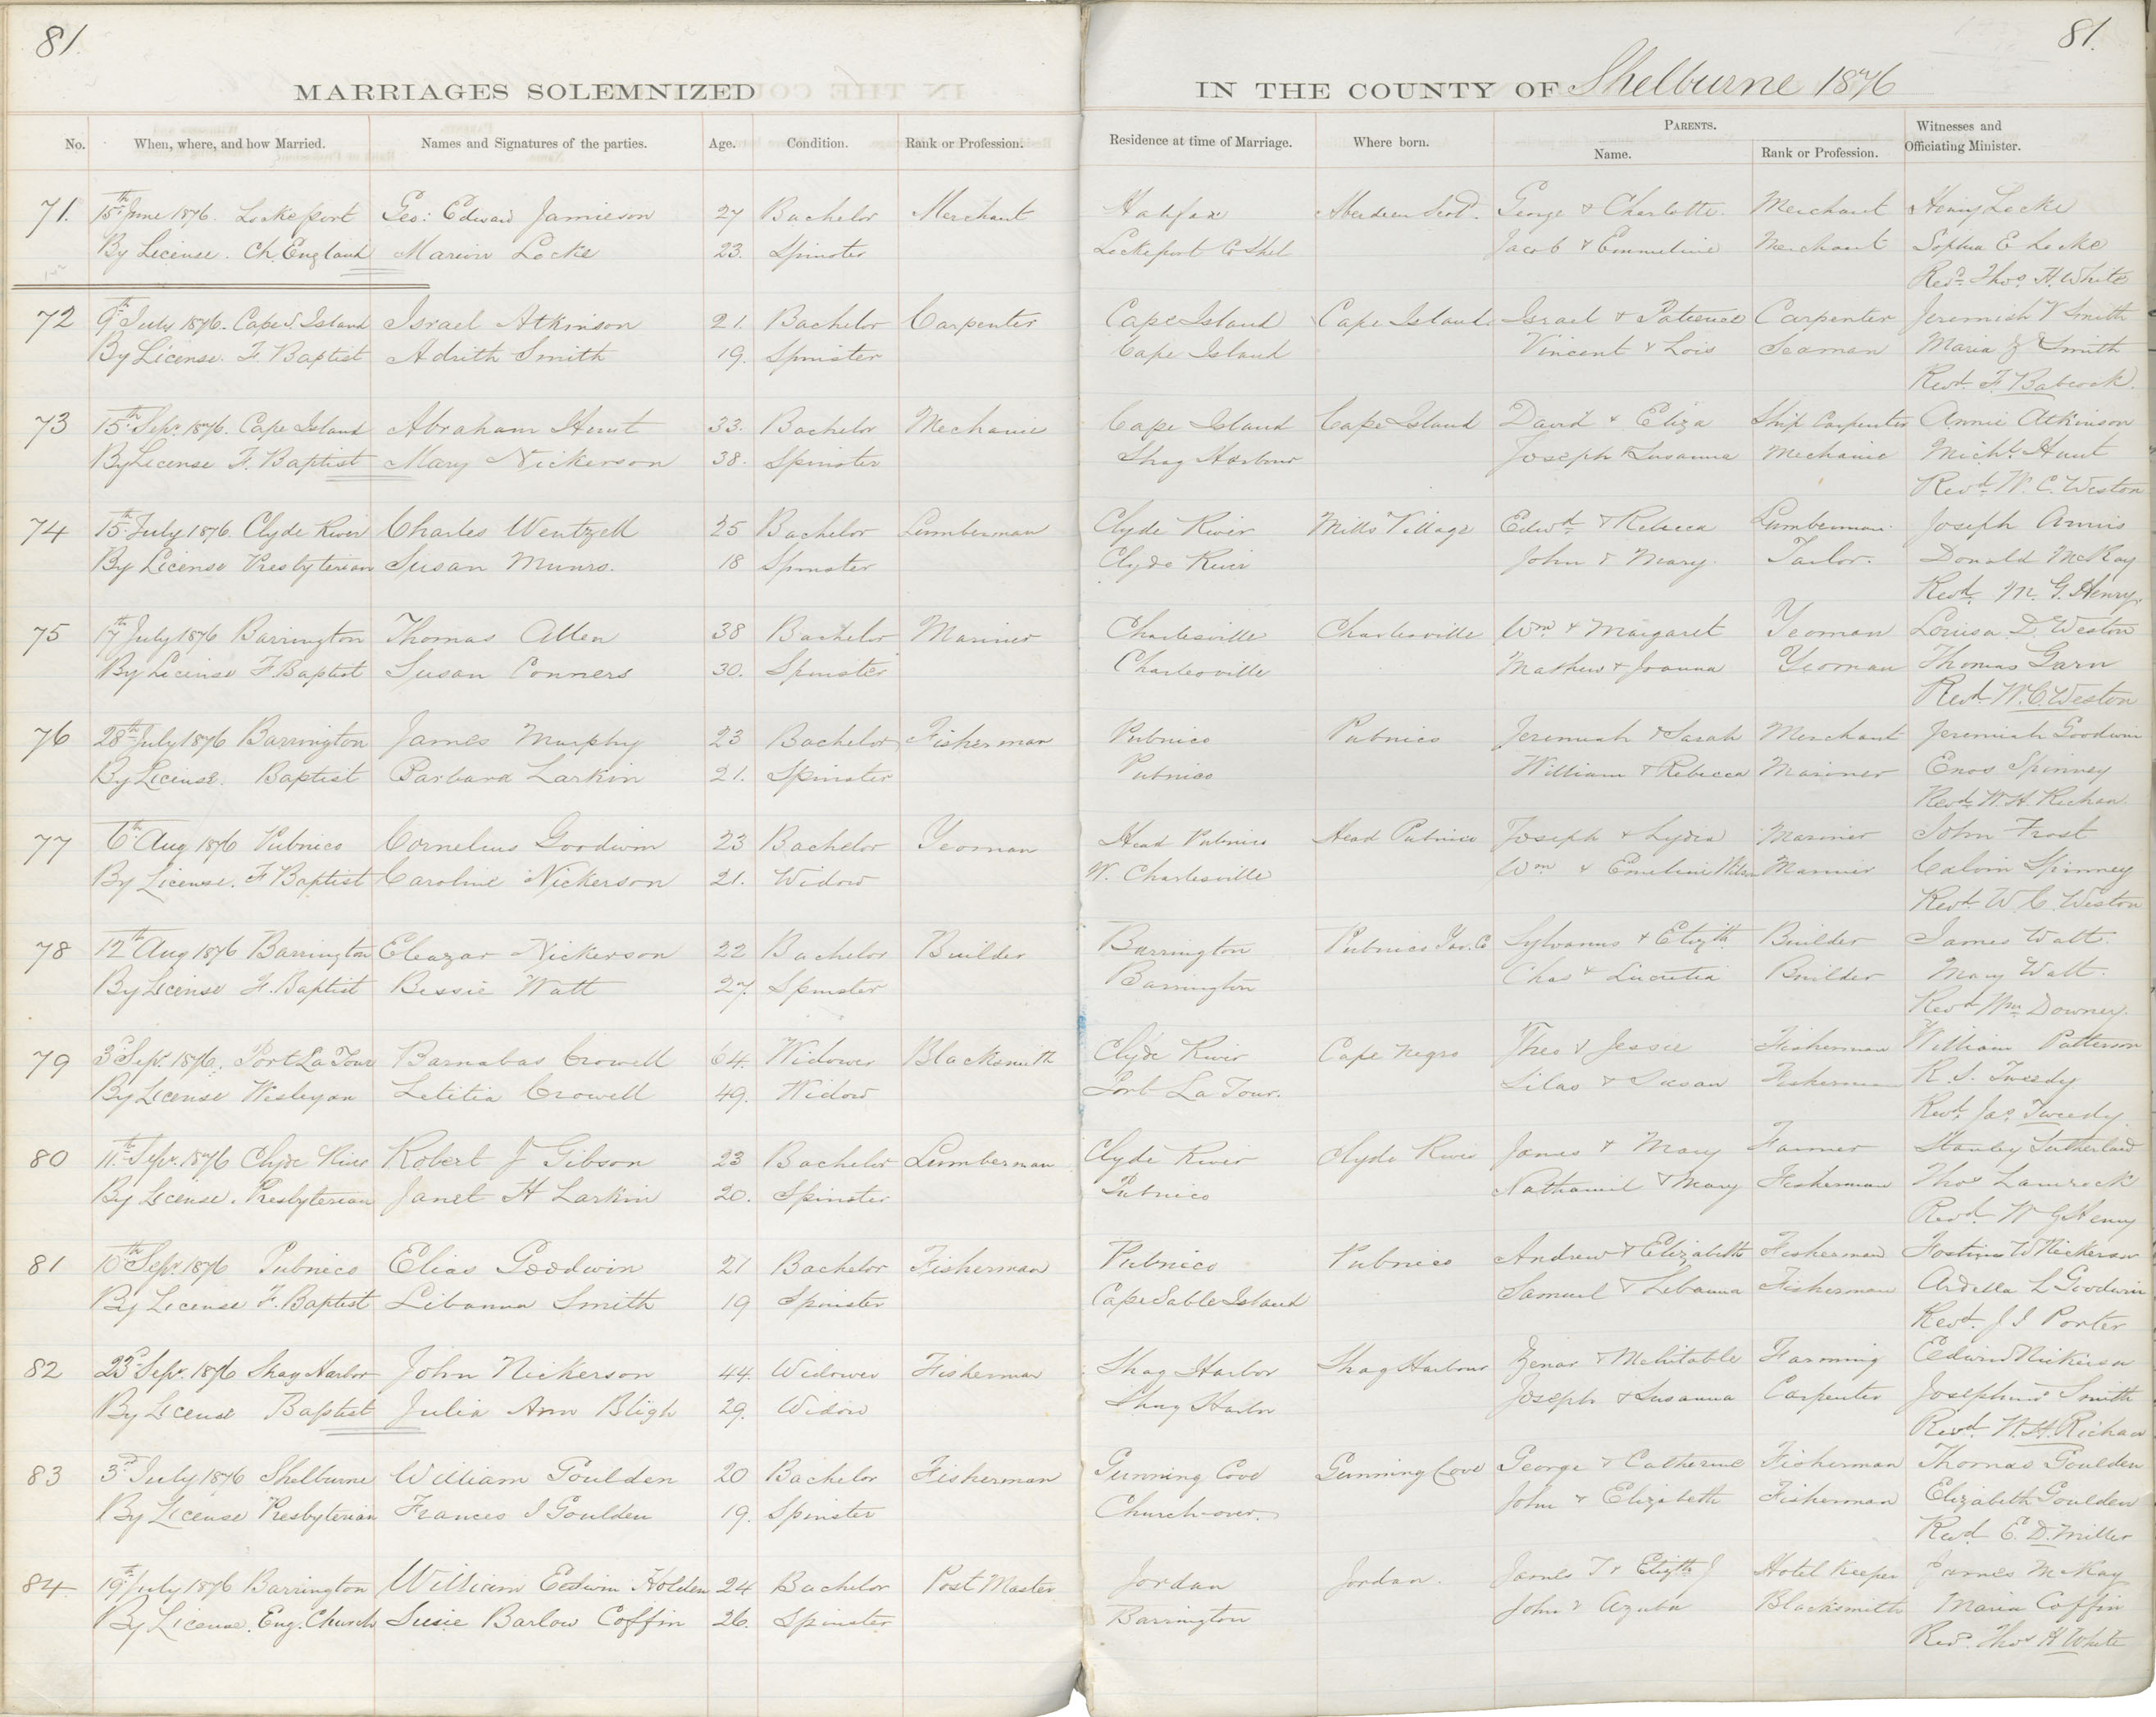 81.
81.
MARRIAGES SOLEMNIZED
IN THE COUNTY OF Shelburne 1876
No. When, where, and how Married. Names and Signatures of the parties. Age. Condition. Rank or Profession. Residence at time of Marriage. Where born. PARENTS. Name. Rank or Profession. Witnesses and Officiating Minister.
71. 15th June 1876. Lockeport Geo: Edward Jamieson 27 Bachelor Merchant Halifax Aberdeen Scotd. George & Charlotte. Merchant Henry Locke
By License. Ch. England Locke 23. Spinster Lockeport Co Shel Jacob & Emmeline Merchant Sophia E Locke
Revd. Thos. H. White
72 9th July 1876. Cape S. Island Israel Atkinson 21. Bachelor Carpenter Cape Island Cape Island Israel & Patience Carpenter Jeremiah V Smith
By License. F. Baptist Adrith Smith 19. Spinster Cape Island Vincent & Lois Seaman Maria Smith
Revd. F. Babcock.
73 15th Sepr. 1876. Cape Island Abraham Hunt 33. Bachelor Mechanic Cape Island Cape Island David & Eliza Ship Carpenter Annie Atkinson
By License F. Baptist Mary Nickerson 38. Spinster Shag Harbour Joseph & Susanna Mechanic Michl. Hunt
Revd. W. C. Weston
74 15th July 1876. Clyde River Charles Wentzell 25 Bachelor Lumberman Clyde River Mills Village Edwd. & Rebecca Lumberman. Joseph Annis
By License Presbyterian Susan Munro. 18 Spinster Clyde River John & Mary. Tailor. Donald McKay
Revd. M. G. Henry.
75 17th July 1876 Barrington Thomas Allen 38 Bachelor Mariner Charlesville Charlesville Wm. & Margaret Yeoman Louisa D. Weston
By License F. Baptist Susan Conners 30. Spinster Charlesville Mathew & Joanna Yeoman Thomas Garn
Revd. W. C. Weston
76 28th July 1876 Barrington James Murphy 23 Bachelor Fisherman Pubnico Pubnico Jeremiah & Sarah Merchant Jeremiah Goodwin
By License. Baptist Barbara Larkin 21. Spinster Pubnico William & Rebecca Mariner Enos Spinney
Revd. W. H. Richan.
77 6th Aug 1876 Pubnico Cornelius Goodwin 23 Bachelor Yeoman Head Pubnico Head Pubnico Joseph & Lydia Mariner John Frost
By License. F Baptist Caroline Nickerson 21. Widow W. Charlesville Wm & Emeline Mariner Calvin Spinney
Revd W. C. Weston
78 12th Aug 1876 Barrington Eleazar Nickerson 22 Bachelor Builder Barrington Pubnico Yar. Co Sylvanus & Elizth. Builder James Watt.
By License F. Baptist Bessie Watt 27. Spinster Barrington Chas & Lucretia Builder Mary Watt.
Revd Wm Downey.
79 3d Sepr. 1876. Port La Tour Barnabas Crowell 64. Widower Blacksmith Clyde River Cape Negro Theo & Jessie Fisherman William Patterson
By License Wesleyan Letitia Crowell 49. Widow Port La Tour. Silas & Susan Fisherman R. S. Tweedy
Revd. Jas. Tweedy.
80 11th Sepr. 1876 Clyde River Robert J Gibson 23 Bachelor Lumberman Clyde River Clyde River James & Mary Farmer Stanley Sutherland
By License. Presbyterian Janet H Larkin 20. Spinster Pubnico Nathaniel & Mary Fisherman Thos
Revd. M G Henry
81 10th Sepr. 1876 Pubnico Elias Goodwin 21 Bachelor Fisherman Pubnico Pubnico Andrew & Elizabeth Fisherman W Nickerson
By License F. Baptist Libanna Smith 19 Spinster Cape Sable Island Samuel & Libanna Fisherman Ardella L Goodwin
Revd. J I Porter
82 23d Sepr. 1876 Shag Harbor John Nickerson 44. Widower Fisherman Shag Harbor Shag Harbour Zenas & Mehitable Farming Edwin Nickerson
By License Baptist Julia Ann Bligh 29. Widow Shag Harbor Joseph & Susanna Carpenter Josephine Smith
Revd. W. H. Richan
83 3d July 1876 Shelburne William Goulden 20 Bachelor Fisherman Gunning Cove Gunning Cove George & Catherine Fisherman Thomas Goulden
By License Presbyterian Frances I Goulden 19. Spinster Church-over. John & Elizabeth Fisherman Elizabeth Goulden
Revd E. D. Miller
84. 19th July 1876 Barrington William Edwin Holden 24 Bachelor Post Master Jordan Jordan. James T & Elizth J Hotel Keeper James McKay
By License. Eng. Church Susie Barlow Coffin 26. Spinster Barrington John & Azuba Blacksmith Maria Coffin
Revd. Thos H White